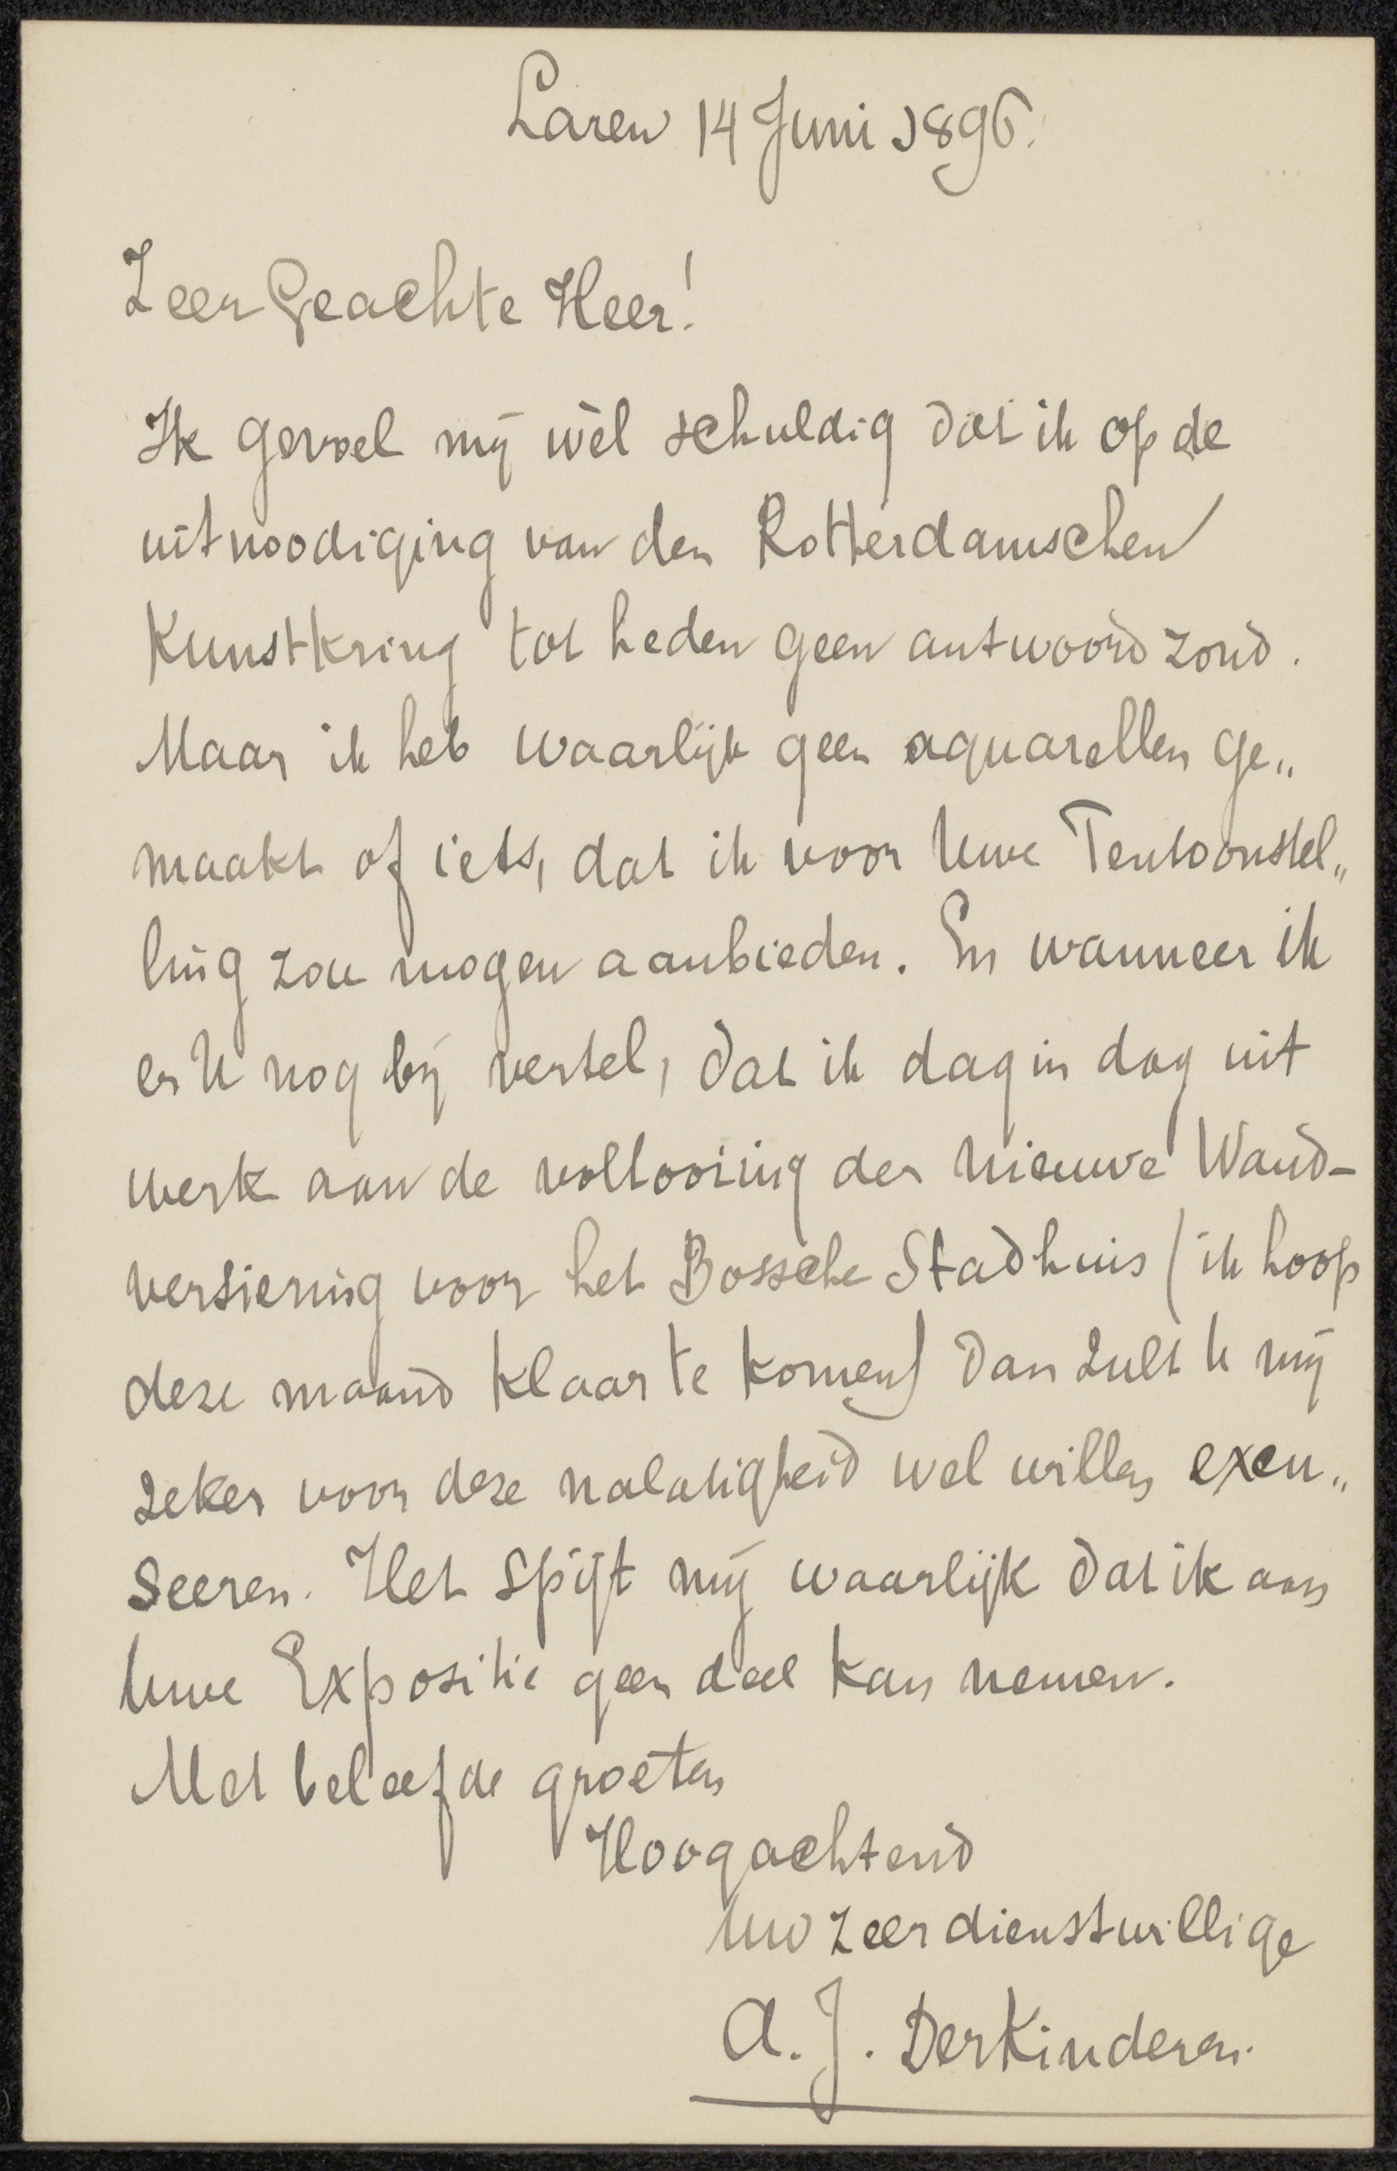 Laren 14 Juni 1896.
Zeer Geachte Heer!
Ik gevoel mij wèl schuldig dat ik op de
uitnoodiging van den Rotterdamschen
Kunstkring tot heden geen antwoord zond.
Maar ik heb waarlijk geen aquarellen ge„
maakt of iets, dat ik voor Uwe Tentoonstel„
ling zou mogen aanbieden. En wanneer ik
er U nog bij vertel, dat ik dag in dag uit
werk aan de voltooiing der nieuwe Wand-
versiering voor het Bossche Stadhuis (ik hoop
deze maand klaar te komen) dan zult U mij
zeker voor deze nalatigheid wel willen excu„
seeren. Het spijt mij waarlijk dat ik aan
Uwe Expositie geen deel kan nemen.
Met beleefde groeten
Hoogachtend
Uw zeer dienstwillige
A. J. DerKinderen.